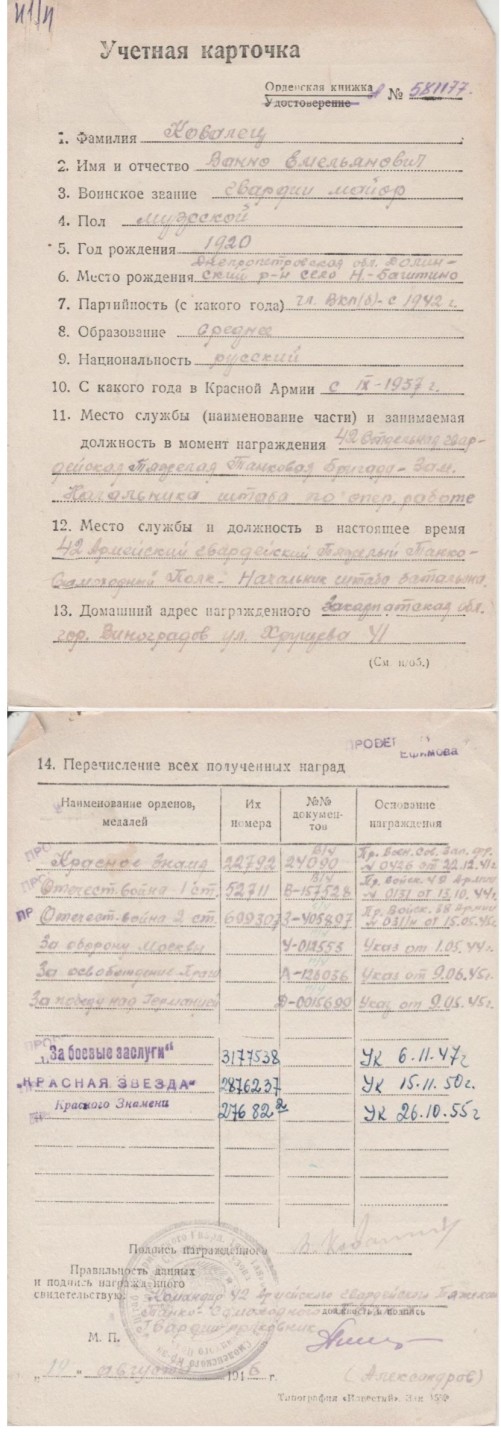 Учетная карточка
Орденская книжка
Удостоверение № 581177
1. Фамилия Ковалец
2. Имя и отчество Ванно Емельянович
3. Воинское звание гвардии майор
4. Пол мужской
5. Год рождения 1920
Днепропетровская обл. Долин-
6. Место рождения ский р-н село Н.-Баштино
7. Партийность (с какого года) чл. ВКП(б) - с 1942 г.
8. Образование среднее
9. Национальность русский
10. С какого года в Красной Армии с IX-1937 г.
11. Место службы (наименование части) и занимаемая
должность в момент награждения 42 Отдельная гвар-
дейская Тяжелая Танковая Бригада - Зам.
Начальника штаба по опер. работе
12. Место службы и должность в настоящее время
42 Армейский гвардейский Тяжелый Танко-
Самоходный Полк - Начальник штаба батальона
13. Домашний адрес награжденного Закарпатская обл.
гор. Виноградов ул. Хрущева 41
(См. н/об.)
14. Перечисление всех полученных наград
Наименование орденов, медалей Их номера №№ докумен-тов Основание награждения
Красное Знамя 22792 24090 Пр. Воен. Сов. Зап. фр. № 0426 от 22.12.41г.
Отечест. война 1 ст. 52711 В-157528 № 0131 от 13.10.44г.
Отечест. война 2 ст. 609307 З-405897 № 031/н от 15.05.45г.
За оборону Москвы Указ от 1.05.44г.
За освобождение Праги А-126036 Указ от 9.06.45г.
За победу над Германией Указ от 9.05.45г.
„За боевые заслуги" 3177538 УК 6.11.47г
"КРАСНАЯ ЗВЕЗДА" 2876237 УК 15.11.50г.
Красного Знамени 27682 2 УК 26.10.55г
Подпись награжденного
Правильность данных
и подпись награжденного
свидетельствую: Командир 42 Армейского гвардейского Тяжелого
Танко-Самоходного Полка
должность и подпись
Гвардии полковник
М. П.
„19" августа 1946 г.
(Александров)
Типография «Известий». Зак